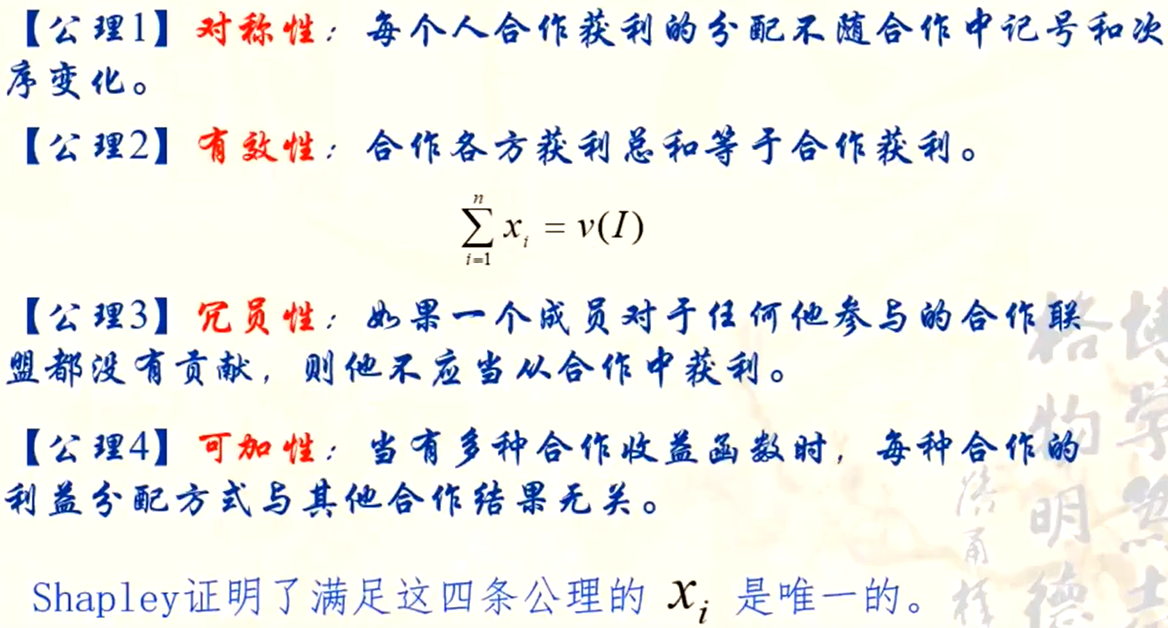 【公理1】对称性：每个人合作获利的分配不随合作中记号和次
序变化。
【公理2】有效性：合作各方获利总和等于合作获利。
\sum_{i=1}^{n} x_i = v(I)
【公理3】冗员性：如果一个成员对于任何他参与的合作联
盟都没有贡献，则他不应当从合作中获利。
【公理4】可加性：当有多种合作收益函数时，每种合作的
利益分配方式与其他合作结果无关。
Shapley证明了满足这四条公理的 x_i 是唯一的。
格物明德
博学